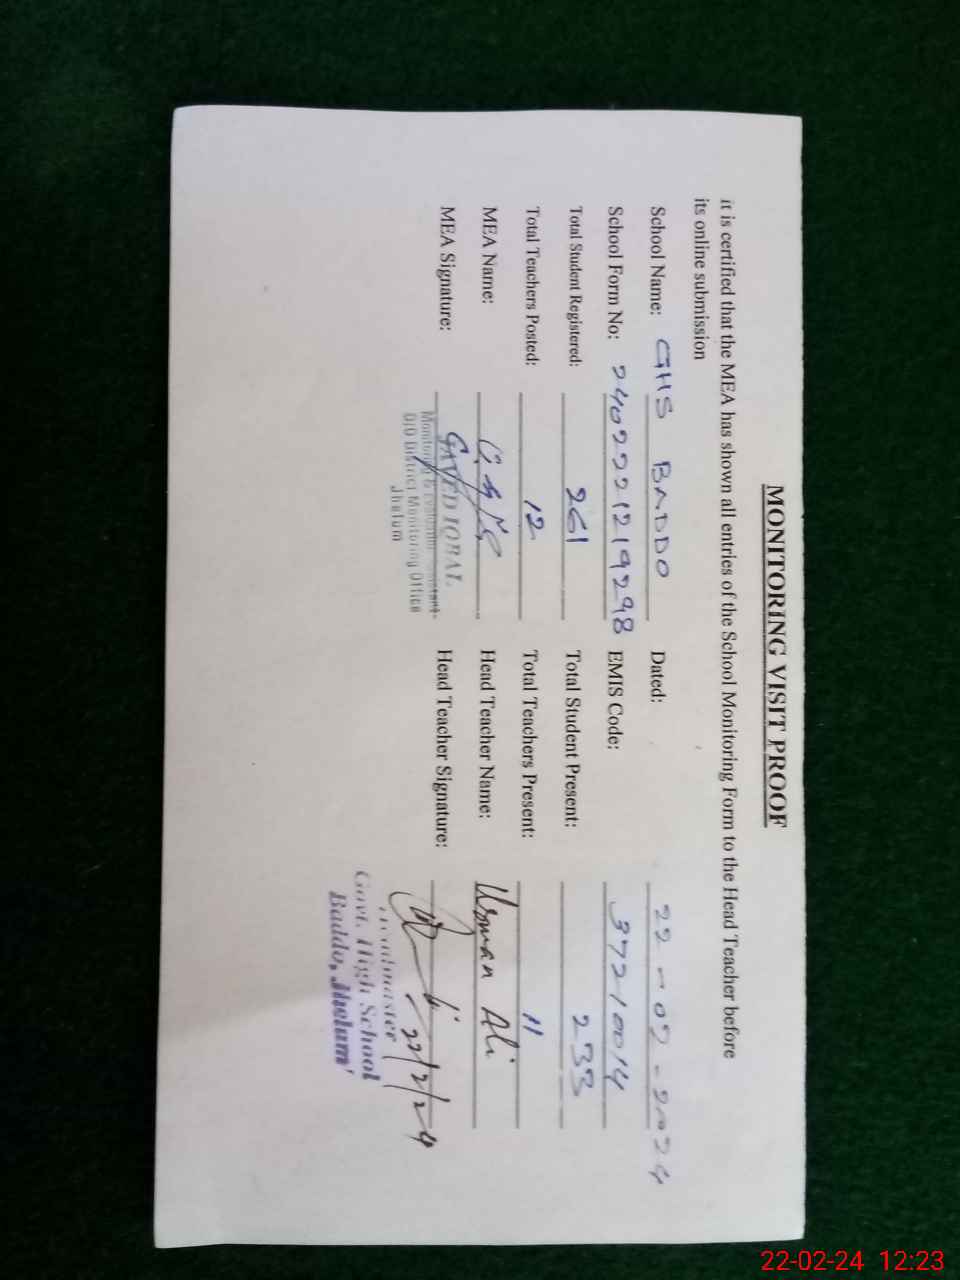 MONITORING VISIT PROOF
it is certified that the MEA has shown all entries of the School Monitoring Form to the Head Teacher before
its online submission
School Name: GHS BADDO Dated: 22-02-2024
School Form No: 2402221219298 EMIS Code: 37210014
Total Student Registered: 261 Total Student Present: 233
Total Teachers Posted: 12 Total Teachers Present: 11
MEA Name: Head Teacher Name: Usman Ali
MEA Signature: Head Teacher Signature: 22/2/24
IQBAL
Monitoring & Evaluation Assistant
O/O District Monitoring Office
Jhelum
Headmaster
Govt. High School
Baddo, Jhelum
22-02-24 12:23